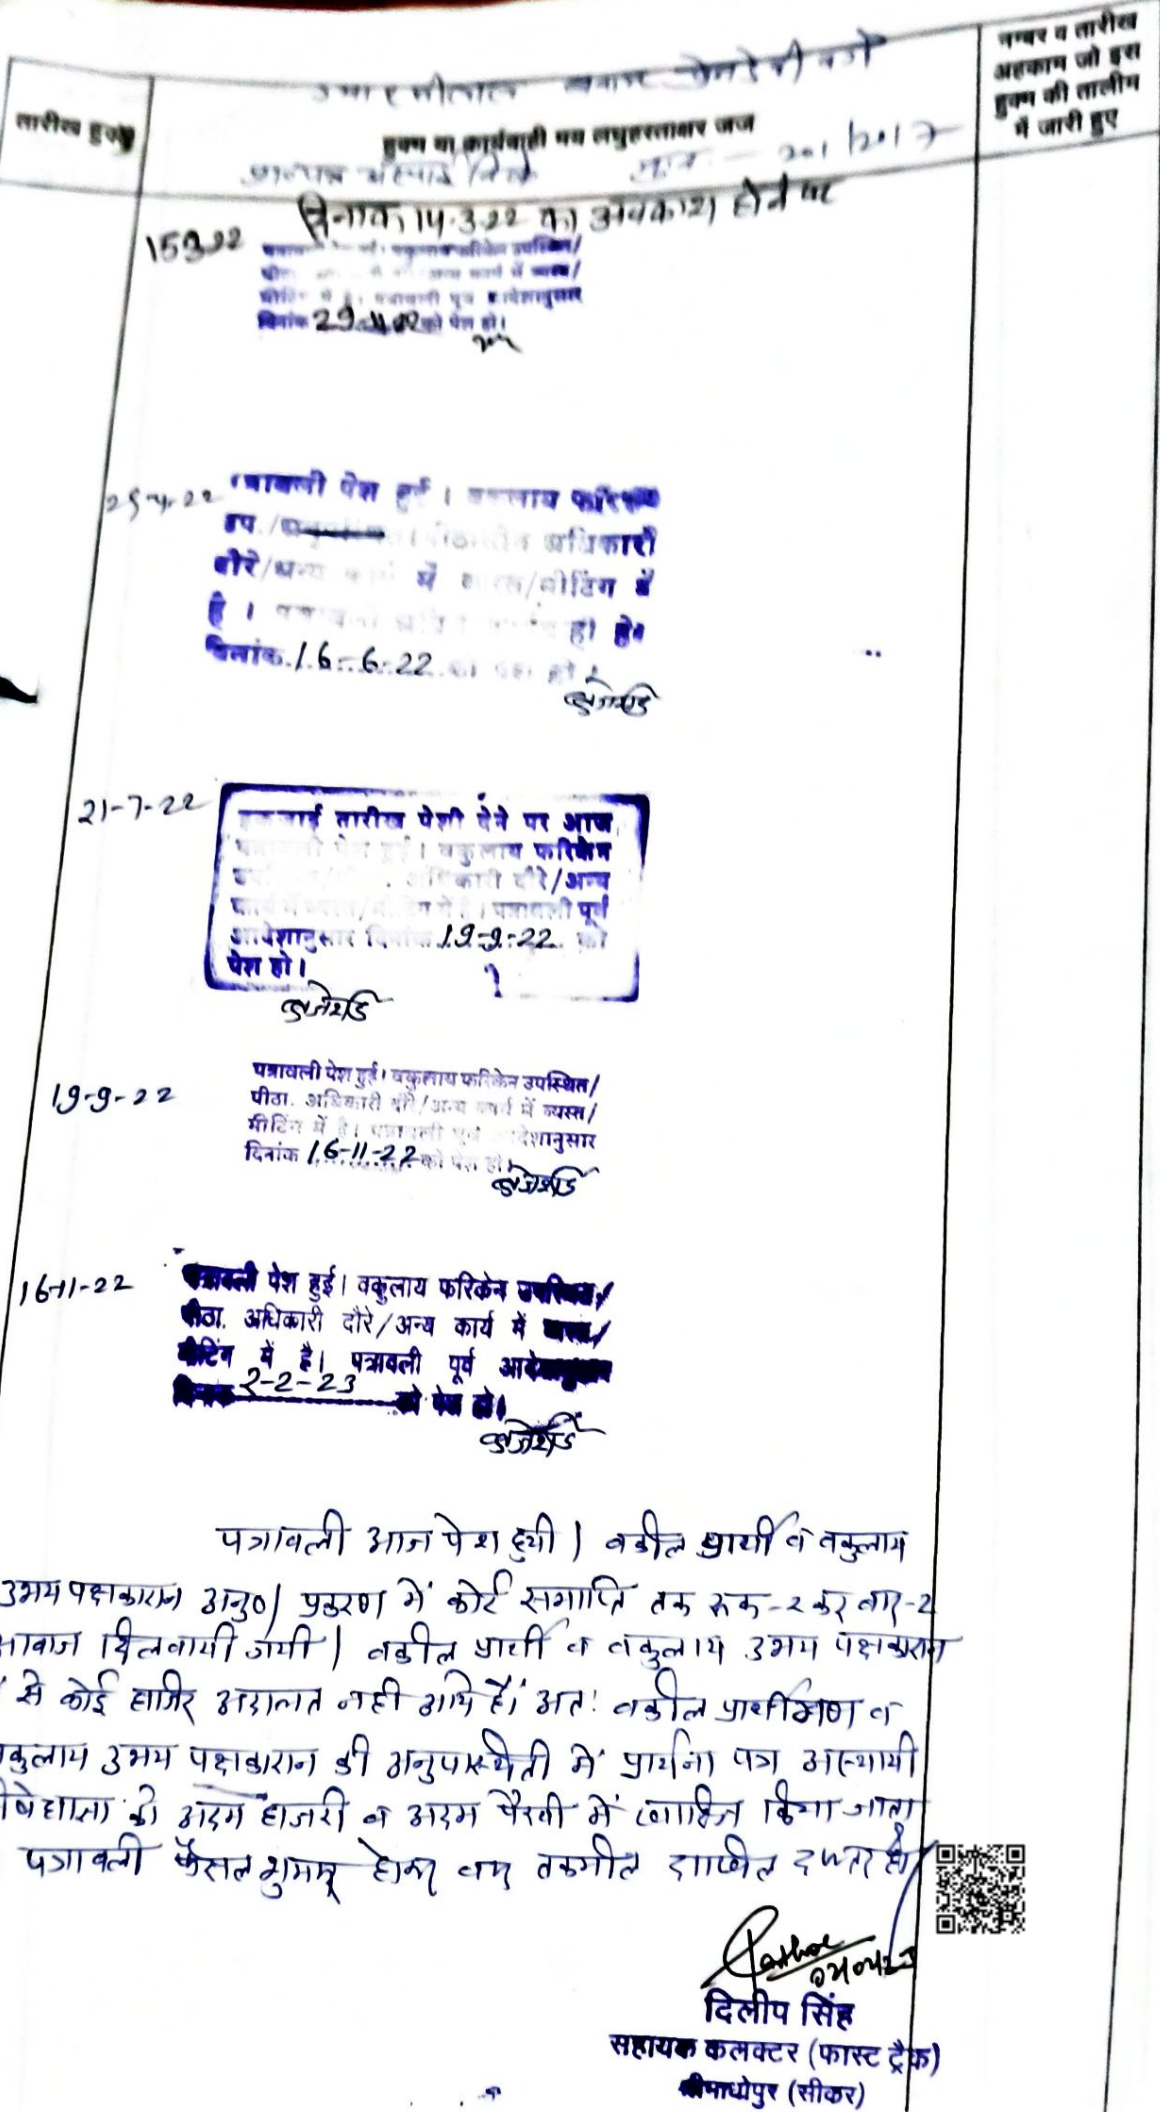 नम्बर व तारीख
अहकाम जो इस
हुक्म की तालीम
में जारी हुए
तारीख हुक्म
बनाम
हुक्म या कार्यवाही मय लघुहस्ताक्षर जज
201/2017
दिनांक 14-3-22 का अवकाश होने पर
15-3-22
उपस्थित/
कार्य में व्यस्त/
मीटिंग में है। पत्रावली पूर्व आदेशानुसार
दिनांक को पेश हो।
पत्रावली पेश हुई। वकुलाय फरिकेन
उप./ अधिकारी
दौरे/अन्य कार्य में व्यस्त/मीटिंग में
है।
दिनांक 16-6-22 को पेश हो।
21-7-22
तारीख पेशी देने पर आज
पत्रावली पेश हुई। वकुलाय फरिकेन
अधिकारी दौरे/अन्य
कार्य में व्यस्त/मीटिंग में है। पत्रावली पूर्व
आदेशानुसार दिनांक 19-9-22 को
पेश हो।
19-9-22
पत्रावली पेश हुई। वकुलाय फरिकेन उपस्थित/
पीठा. अधिकारी दौरे/अन्य कार्य में व्यस्त/
मीटिंग में है। पत्रावली पूर्व आदेशानुसार
दिनांक 16-11-22 को पेश हो।
16-11-22
पत्रावली पेश हुई। वकुलाय फरिकेन उपस्थित/
पीठा. अधिकारी दौरे/अन्य कार्य में व्यस्त/
मीटिंग में है। पत्रावली पूर्व आदेशानुसार
दिनांक 2-2-23 को पेश हो।
पत्रावली आज पेश हुयी। वकील प्रार्थी व वकुलाय
उभय पक्षकारान अनु०। प्रकरण में कोर्ट समाप्ति तक रूक-2 कर बार-2
आवाज दिलवायी गयी। वकील प्रार्थी व वकुलाय उभय पक्षकारान
से कोई हाजिर अदालत नही आये है। अतः वकील प्रार्थीगण व
वकुलाय उभय पक्षकारान की अनुपस्थिती में प्रार्थना पत्र अस्थायी
निषेधाज्ञा को अदम हाजरी व अदम पैरवी में खारिज किया जाता
पत्रावली फैसल शुमार होकर बाद तकमील दाखील दफ्तर हो।
दिलीप सिंह
सहायक कलक्टर (फास्ट ट्रैक)
श्रीमाधोपुर (सीकर)